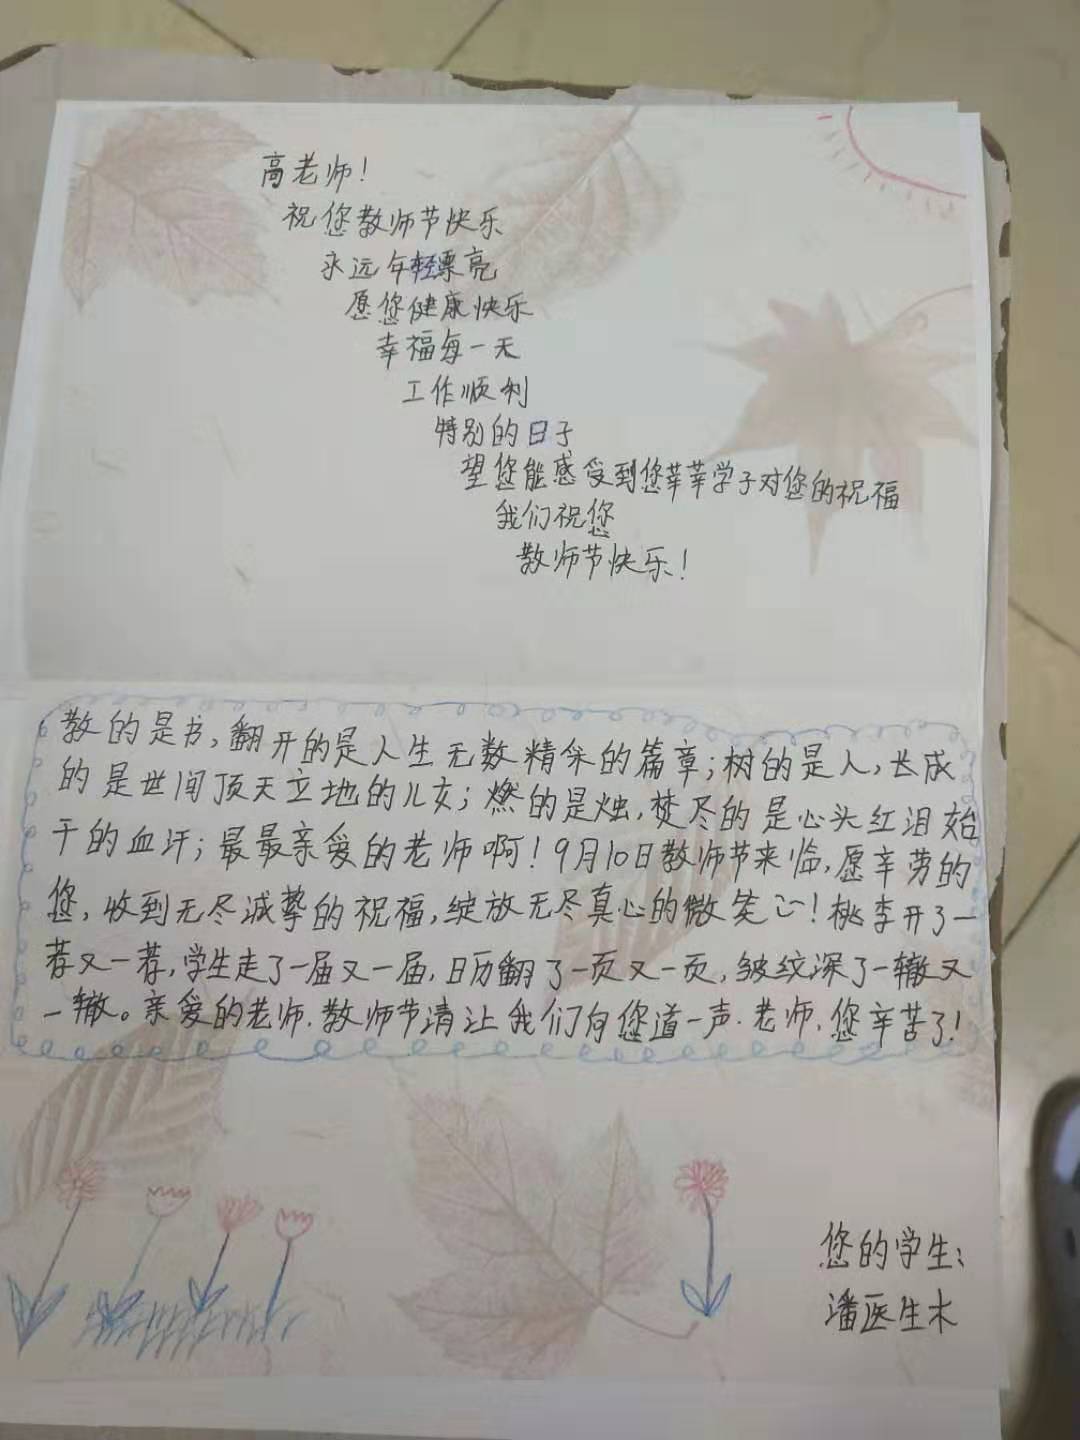 高老师!
祝您教师节快乐
永远年轻漂亮
愿您健康快乐
幸福每一天
工作顺利
特别的日子
望您能感受到您莘莘学子对您的祝福
我们祝您
教师节快乐!
教的是书,翻开的是人生无数精采的篇章;树的是人,长成
的是世间顶天立地的儿女;燃的是烛,焚尽的是心头红泪始
干的血汗;最最亲爱的老师啊!9月10日教师节来临,愿辛劳的
您,收到无尽诚挚的祝福,绽放无尽真心的微笑!桃李开了一
茬又一茬,学生走了一届又一届,日历翻了一页又一页,皱纹深了一辙又
一辙。亲爱的老师.教师节请让我们向您道一声.老师.您辛苦了!
您的学生:
潘医生木